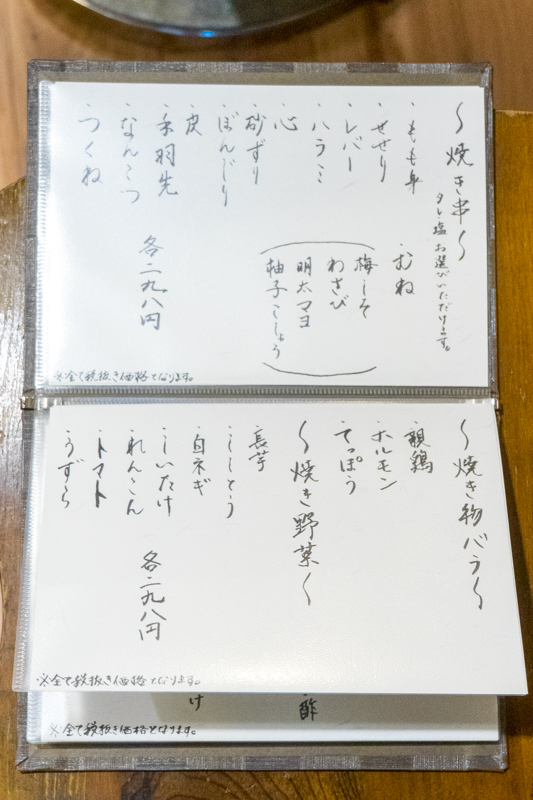 ～焼き串～
タレ・塩 お選びいただけます。
・もも身
・せせり
・レバー
・ハラミ
・心
・砂ずり
・ぼんじり
・皮
・手羽先
・なんこつ
・つくね
・むね
梅しそ
わさび
明太マヨ
柚子こしょう
各二九八円
※全て税抜き価格となります。
～焼き物バラ～
・親鶏
・ホルモン
・てっぽう
～焼き野菜～
・長芋
・ししとう
・白ネギ
・しいたけ
・れんこん
・トマト
・うずら
各二九八円
※全て税抜き価格となります。
酢
け
※全て税抜き価格となります。